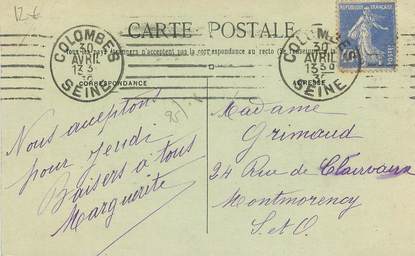 12 €
CARTE POSTALE
COLOMBES
30
AVRIL
SEINE
COLOMBES
30
AVRIL
SEINE
n'acceptent pas la correspondance au recto
CORRESPONDANCE
ADRESSE
95
Nous acceptons
pour Jeudi
Baisers à tous
Marguerite
Madame
Grimaud
24 Rue de Clairvaux
Montmorency
S. et O.